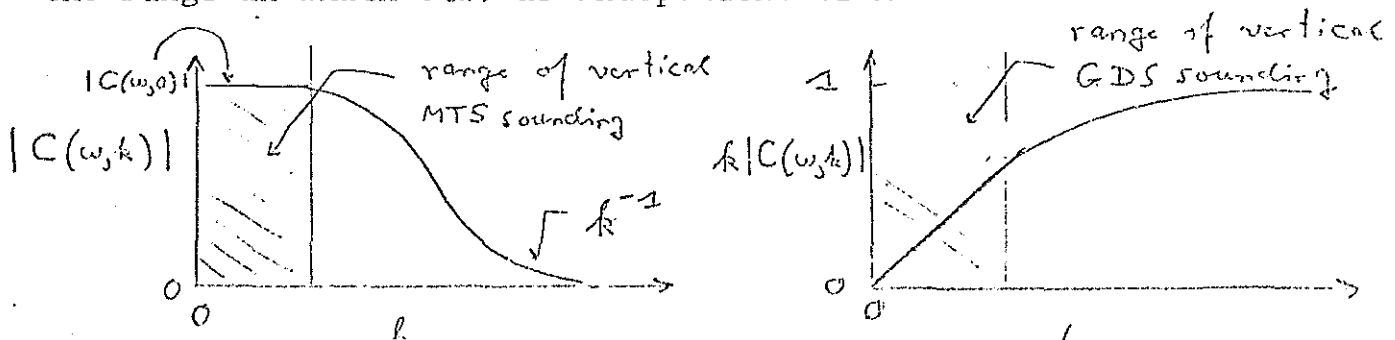 |C(ω,0)|
range of vertical
MTS sounding
|C(ω,k)|
k⁻¹
0
0
k
range of vertical
GDS sounding
1
k|C(ω,k)|
0
0